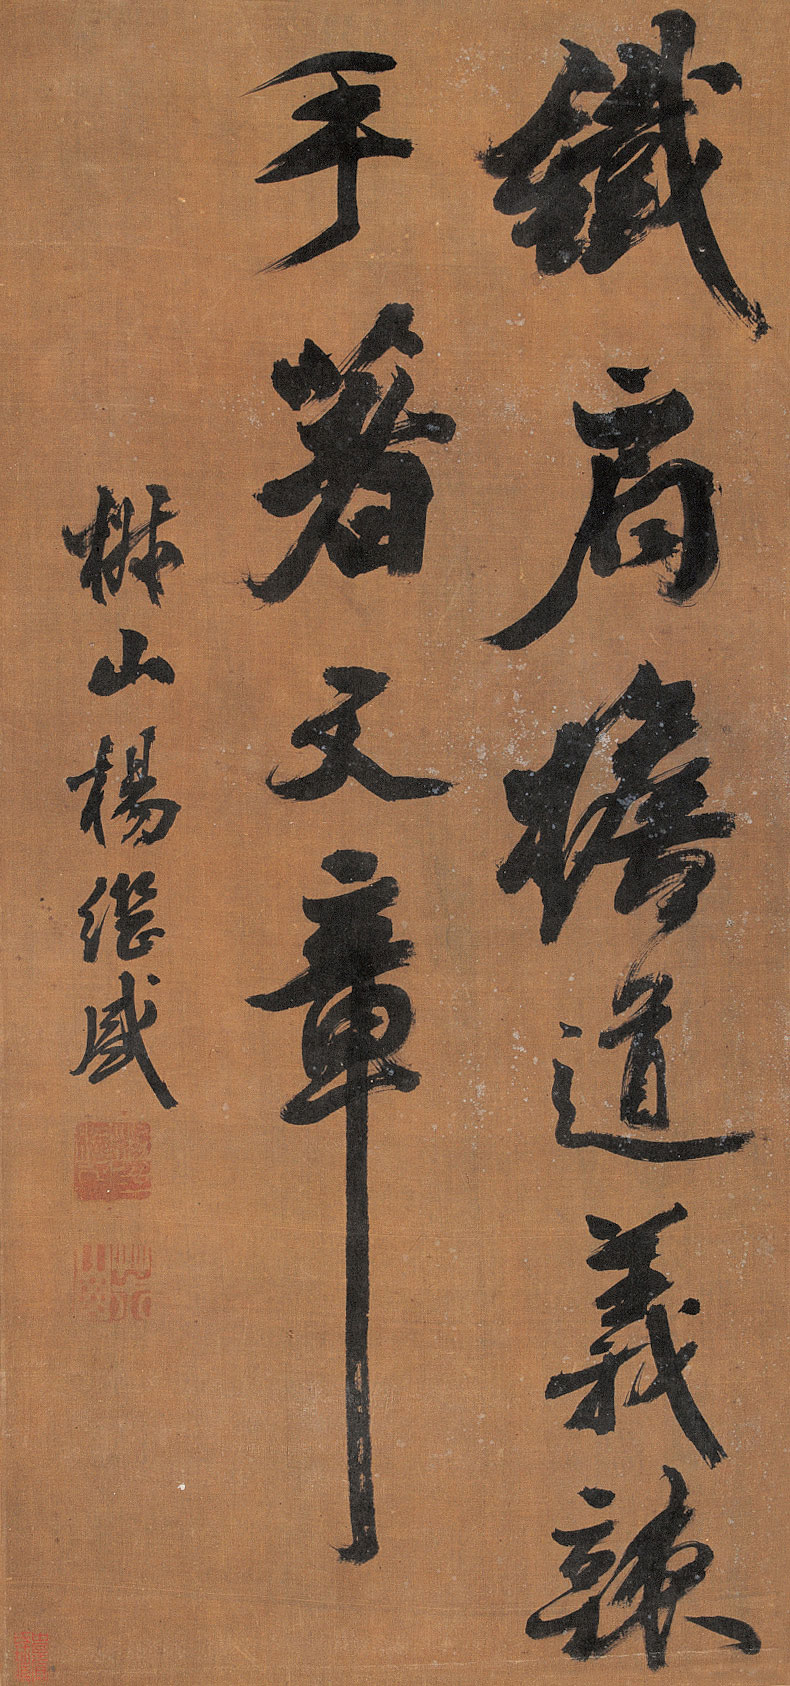 鐵肩擔道義辣
手著文章
椒山楊繼盛